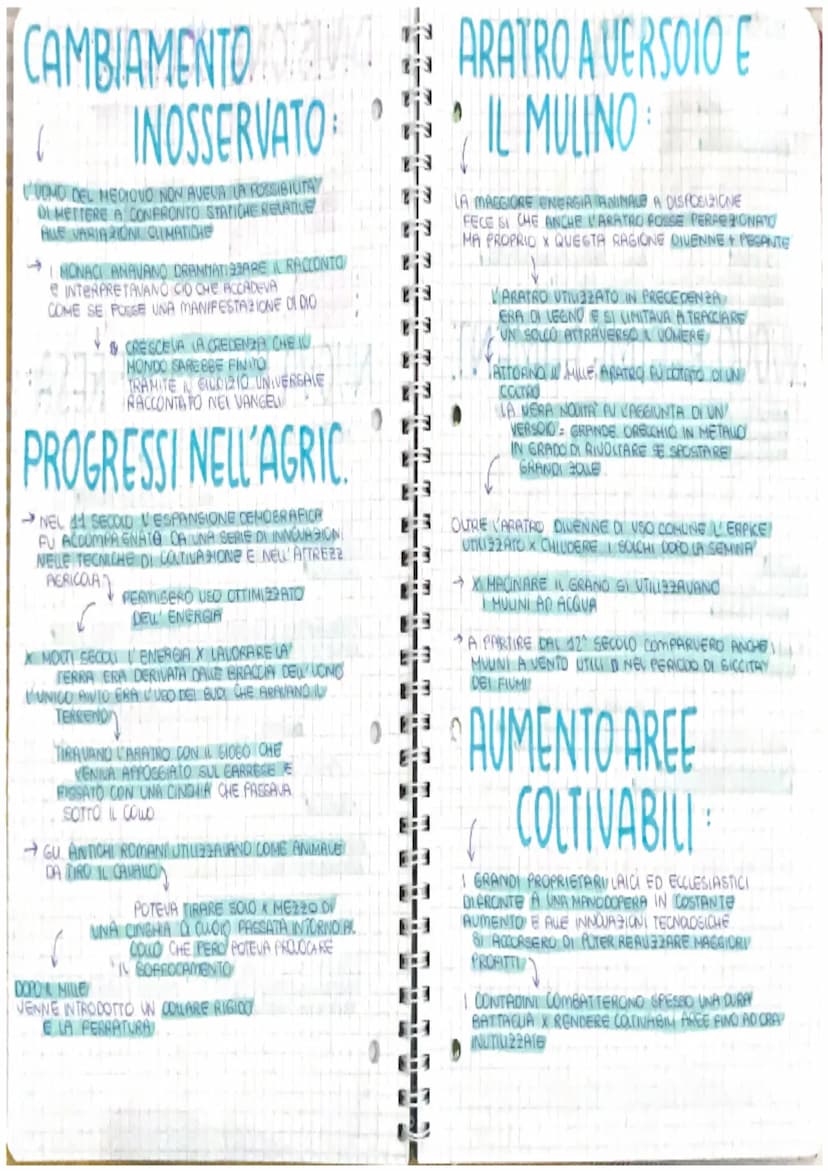 CAMBIAMENTO
INOSSERVATO:
L'UOMO DEL MEDIOVO NON AVEVA LA POSSIBILITA'
DI METTERE A CONFRONTO STATICHE RELATIVE
ALLE VARIAZIONI CLIMATICHE
→ I MONACI AMAVANO DRAMMATIZZARE IL RACCONTO
E INTERPRETAVANO CIÒ CHE ACCADEVA
COME SE FOSSE UNA MANIFESTAZIONE DI DIO
CRESCEVA LA CREDENZA CHE IL
MONDO SAREBBE FINITO
TRAMITE IL GIUDIZIO UNIVERSALE
RACCONTATO NEI VANGELI
PROGRESSI NELL'AGRIC.
→ NEL 11 SECOLO L'ESPANSIONE DEMOGRAFICA
FU ACCOMPAGNATA DA UNA SERIE DI INNOVAZIONI
NELLE TECNICHE DI COLTIVAZIONE E NELL'ATTREZZ
AGRICOLA
PERMISERO USO OTTIMIZZATO
DELL'ENERGIA
X MOLTI SECOLI L'ENERGIA X LAVORARE LA
TERRA ERA DERIVATA DALLE BRACCIA DELL'UOMO
L'UNICO AIUTO ERA L'USO DEI BUOI CHE ARAVANO IL
TERRENO
TIRAVANO L'ARATRO CON IL GIOGO CHE
VENIVA APPOGGIATO SUL GARRESE E
FISSATO CON UNA CINGHIA CHE PASSAVA
SOTTO IL COLLO
→ GLI ANTICHI ROMANI UTILIZZAVANO COME ANIMALE
DA TIRO IL CAVALLO
POTEVA TIRARE SOLO X MEZZO DI
UNA CINGHIA DI CUOIO PASSATA INTORNO AL
COLLO CHE PERÒ POTEVA PROVOCARE
IL SOFFOCAMENTO
DOPO IL MILLE
VENNE INTRODOTTO UN COLLARE RIGIDO
E LA FERRATURA
ARATRO A VERSOIO E
IL MULINO:
LA MAGGIORE ENERGIA ANIMALE A DISPOSIZIONE
FECE SI CHE ANCHE L'ARATRO FOSSE PERFEZIONATO
MA PROPRIO X QUESTA RAGIONE DIVENNE + PESANTE
L'ARATRO UTILIZZATO IN PRECEDENZA
ERA DI LEGNO E SI LIMITAVA A TRACCIARE
UN SOLCO ATTRAVERSO IL VOMERE
ATTORNO IL MILLE, ARATRO FU DOTATO DI UN
COLTRO
LA VERA NOVITÀ FU L'AGGIUNTA DI UN
VERSOIO = GRANDE ORECCHIO IN METALLO
IN GRADO DI RIVOLTARE E SPOSTARE
GRANDI ZOLLE
OLTRE L'ARATRO DIVENNE DI USO COMUNE L'ERPICE
UTILIZZATO X CHIUDERE I SOLCHI DOPO LA SEMINA
→ X MACINARE IL GRANO SI UTILIZZAVANO
I MULINI AD ACQUA
→ A PARTIRE DAL 12° SECOLO COMPARVERO ANCHE I
MULINI A VENTO UTILI NEL PERIODO DI SICCITA'
DEI FIUMI
AUMENTO AREE
COLTIVABILI:
I GRANDI PROPRIETARI LAICI ED ECCLESIASTICI
DI FRONTE A UNA MANODOPERA IN COSTANTE
AUMENTO E ALLE INNOVAZIONI TECNOLOGICHE
SI ACCORSERO DI POTER REALIZZARE MAGGIORI
PROFITTI
I CONTADINI COMBATTERONO SPESSO UNA DURA
BATTAGLIA X RENDERE COLTIVABILI AREE FINO AD ORA
INUTILIZZATE